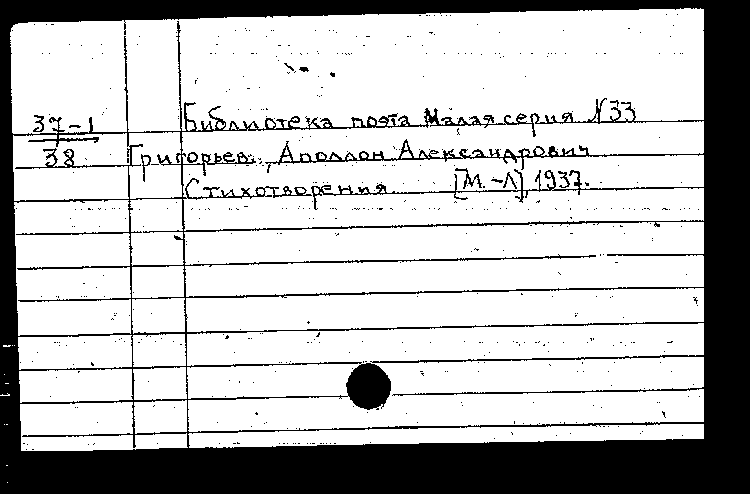 37-1 Библиотека поэта Малая серия N33
38 Григорьев, Аполлон Александрович
Стихотворения [М.-Л], 1937.